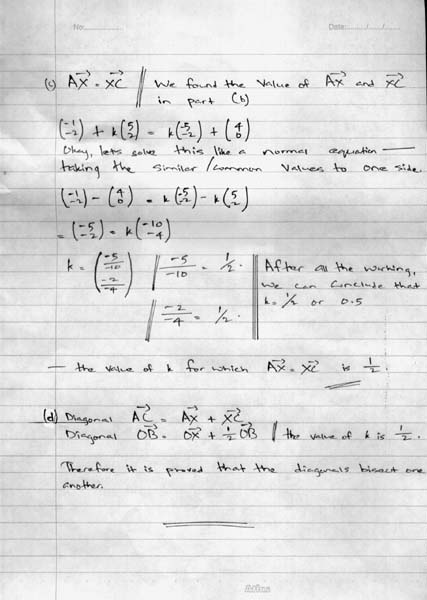 No:
Date: / /
(c) AX→ = XC→ || We found the value of AX→ and XC→
in part (b)
(-1 -2) + k(5 2) = k(-5 -2) + (4 0)
Okay, lets solve this like a normal equation —
taking the similar / common values to one side.
(-1 -2) - (4 0) = k(-5 -2) - k(5 2)
= (-5 -2) = k(-10 -4)
k = (-5/-10 -2/-4) || -5/-10 = 1/2. || After all the working,
we can conclude that
k = 1/2 or 0.5
|| -2/-4 = 1/2.
— the value of k for which AX→ = XC→ is 1/2.
(d) Diagonal AC→ = AX→ + XC→
Diagonal OB→ = OX→ + 1/2 OB→ || the value of k is 1/2.
Therefore it is proved that the diagonals bisect one
another.